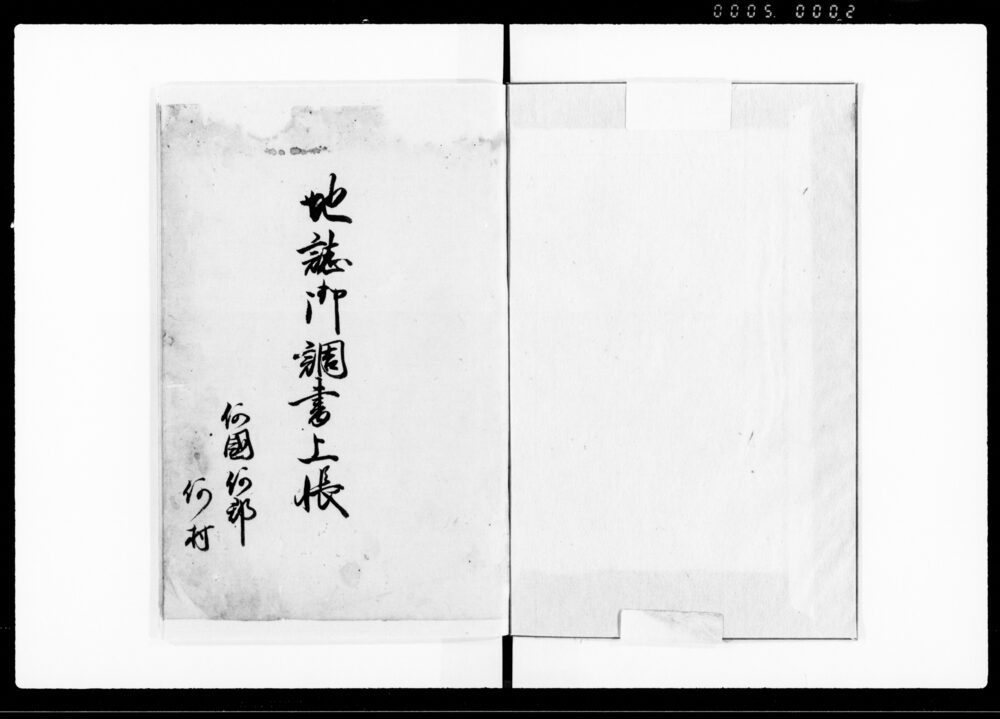 0005 0002
地誌御調書上帳
何國何郡
何村